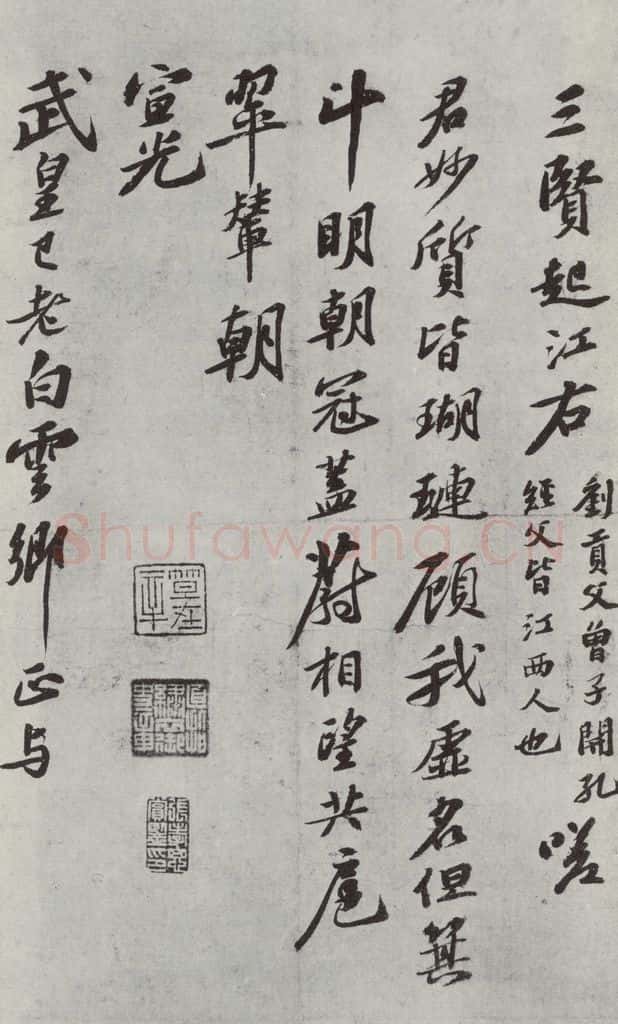 三賢起江右
劉貢父曾子開孔
經父皆江西人也
嗟
君妙質皆瑚璉顧我虛名但箕
斗明朝冠蓋蔚相望共扈
翠輦朝
宣光
武皇已老白雲鄉正与
張孝思賞鑒印
Shufawang.CN